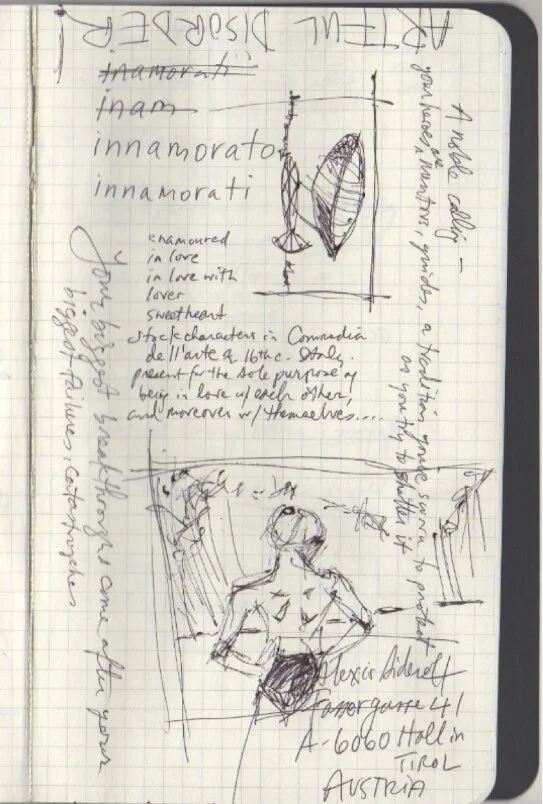 ARTFUL DISORDER
inamorati
inam
innamorato
innamorati
enamoured
in love
in love with
lover
sweetheart
stock characters in Commedia
dell'arte of 16th c. Italy.
present for the sole purpose of
being in love w/ each other,
and moreover w/ themselves....
A noble calling —
your heroes are mentors, guides, a tradition you've sworn to protect
as you try to shutter it
Your biggest breakthroughs come after your
biggest failures, catastrophes
Alexis
Fassergasse 41
A-6060 Hall in
TIROL
AUSTRIA